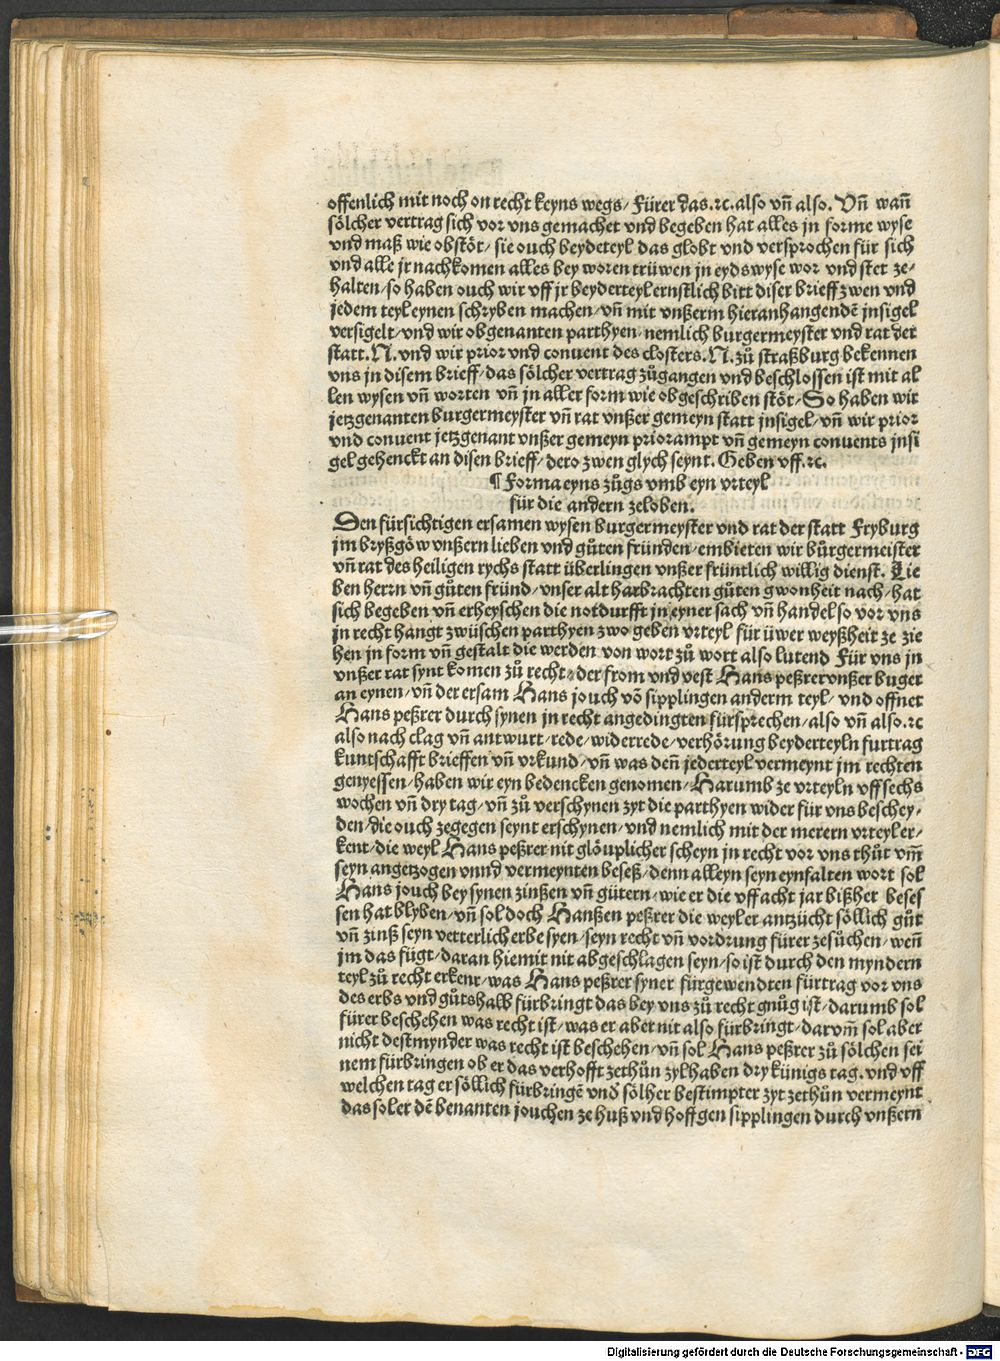 offenlich mit noch on recht keyns wegs/ fürer das.ꝛc.also vñ also. Vñ wañ
sölcher vertrag sich vor vns gemachet vnd begeben hat alles jn forme wyse
vnd maß wie obstöt/ sie ouch beydeteyl das globt vnd versprochen für sich
vnd alle jr nachkomen alles bey woren trüwen jn eydswyse wor vnd stet ze/
halten/so haben ouch wir vff jr beyderteyl ernstlich bitt diser brieff zwen vnd
jedem teyl eynen schryben machen/ vñ mit vnßerm hieranhangendē jnsigel
versigelt/ vnd wir obgenanten parthyen nemlich burgermeyster vnd rat der
statt.N.vnd wir prior vnd conuent des closters.N.zů straßburg bekennen
vns jn disem brieff/ das sölcher vertrag zůgangen vnd beschlossen ist mit al
len wysen vñ worten vñ jn aller form wie obgeschriben stöt/So haben wir
jetzgenanten burgermeyster vñ rat vnßer gemeyn statt jnsigel/vñ wir prior
vnd conuent jetzgenant vnßer gemeyn priorampt vñ gemeyn conuents jnsi
gel gehenckt an disen brieff/ dero zwen glych seynt. Geben vff.ꝛc.
¶ Forma eyns zůgs vmb eyn vrteyl
für die andern zeloben.
Den fürsichtigen ersamen wysen burgermeyster vnd rat der statt Fryburg
jm bryßgöw vnßern lieben vnd gůten fründen/embieten wir bůrgermeister
vñ rat des heiligen rychs statt überlingen vnßer früntlich willig dienst. Lie
ben herrn vñ gůten fründ/vnser alt harbrachten gůten gwonheit nach/hat
sich begeben vñ erheyschen die notdurfft jn eyner sach vñ handel so vor vns
jn recht hangt zwüschen parthyen zwo geben vrteyl für üwer weyßheit ze zie
hen jn form vñ gestalt die werden von wort zů wort also lutend Für vns jn
vnßer rat synt komen zů recht/der from vnd vest Hans peßrer vnßer buger
an eynen/ vñ der ersam Hans jouch vō sipplingen anderm teyl/ vnd offnet
Hans peßrer durch synen jn recht angedingten fürsprechen/also vñ also.ꝛc
also nach clag vñ antwurt/rede/widerrede/verhörung beyderteyln furtrag
kuntschafft brieffen vñ vrkund/vñ was deñ jederteyl vermeynt jm rechten
genyessen/haben wir eyn bedencken genomen/Harumb ze vrteyln vff sechs
wochen vñ dry tag/vñ zů verschynen zyt die parthyen wider für vns beschey/
den/die ouch zegegen seynt erschynen/vnd nemlich mit der merern vrteyl er/
kent/die weyl Hans peßrer nit glöuplicher scheyn jn recht vor vns thůt vm̄
seyn angetzogen vnnd vermeynten beseß/denn alleyn seyn eynfalten wort sol
Hans jouch bey synen zinßen vñ gütern/wie er die vff acht jar bißher beses
sen hat blyben/vñ sol doch Hanßen peßrer die weyl er antzücht söllich gůt
vñ zinß seyn vetterlich erbe syen/seyn recht vñ vordrung fürer zesůchen/weñ
jm das fügt/daran hiemit nit abgeschlagen seyn/so ist durch den myndern
teyl zů recht erkent/was Hans peßrer syner fürgewendten fürtrag vor vns
des erbs vnd gůtshalb fürbringt das bey vns zů recht gnůg ist/darumb sol
fürer beschehen was recht ist/was er aber nit also fürbringt/darvm̄ sol aber
nicht destmynder was recht ist beschehen/vñ sol Hans peßrer zů sölchen sei
nem fürbringen ob er das verhofft zethůn zyl haben dry künigs tag.vnd vff
welchen tag er söllich fürbringē vnd sölher bestimpter zyt zethůn vermeynt
das sol er dē benanten jouchen ze huß vnd hoff gen sipplingen durch vnßern
Digitalisierung gefördert durch die Deutsche Forschungsgemeinschaft - DFG